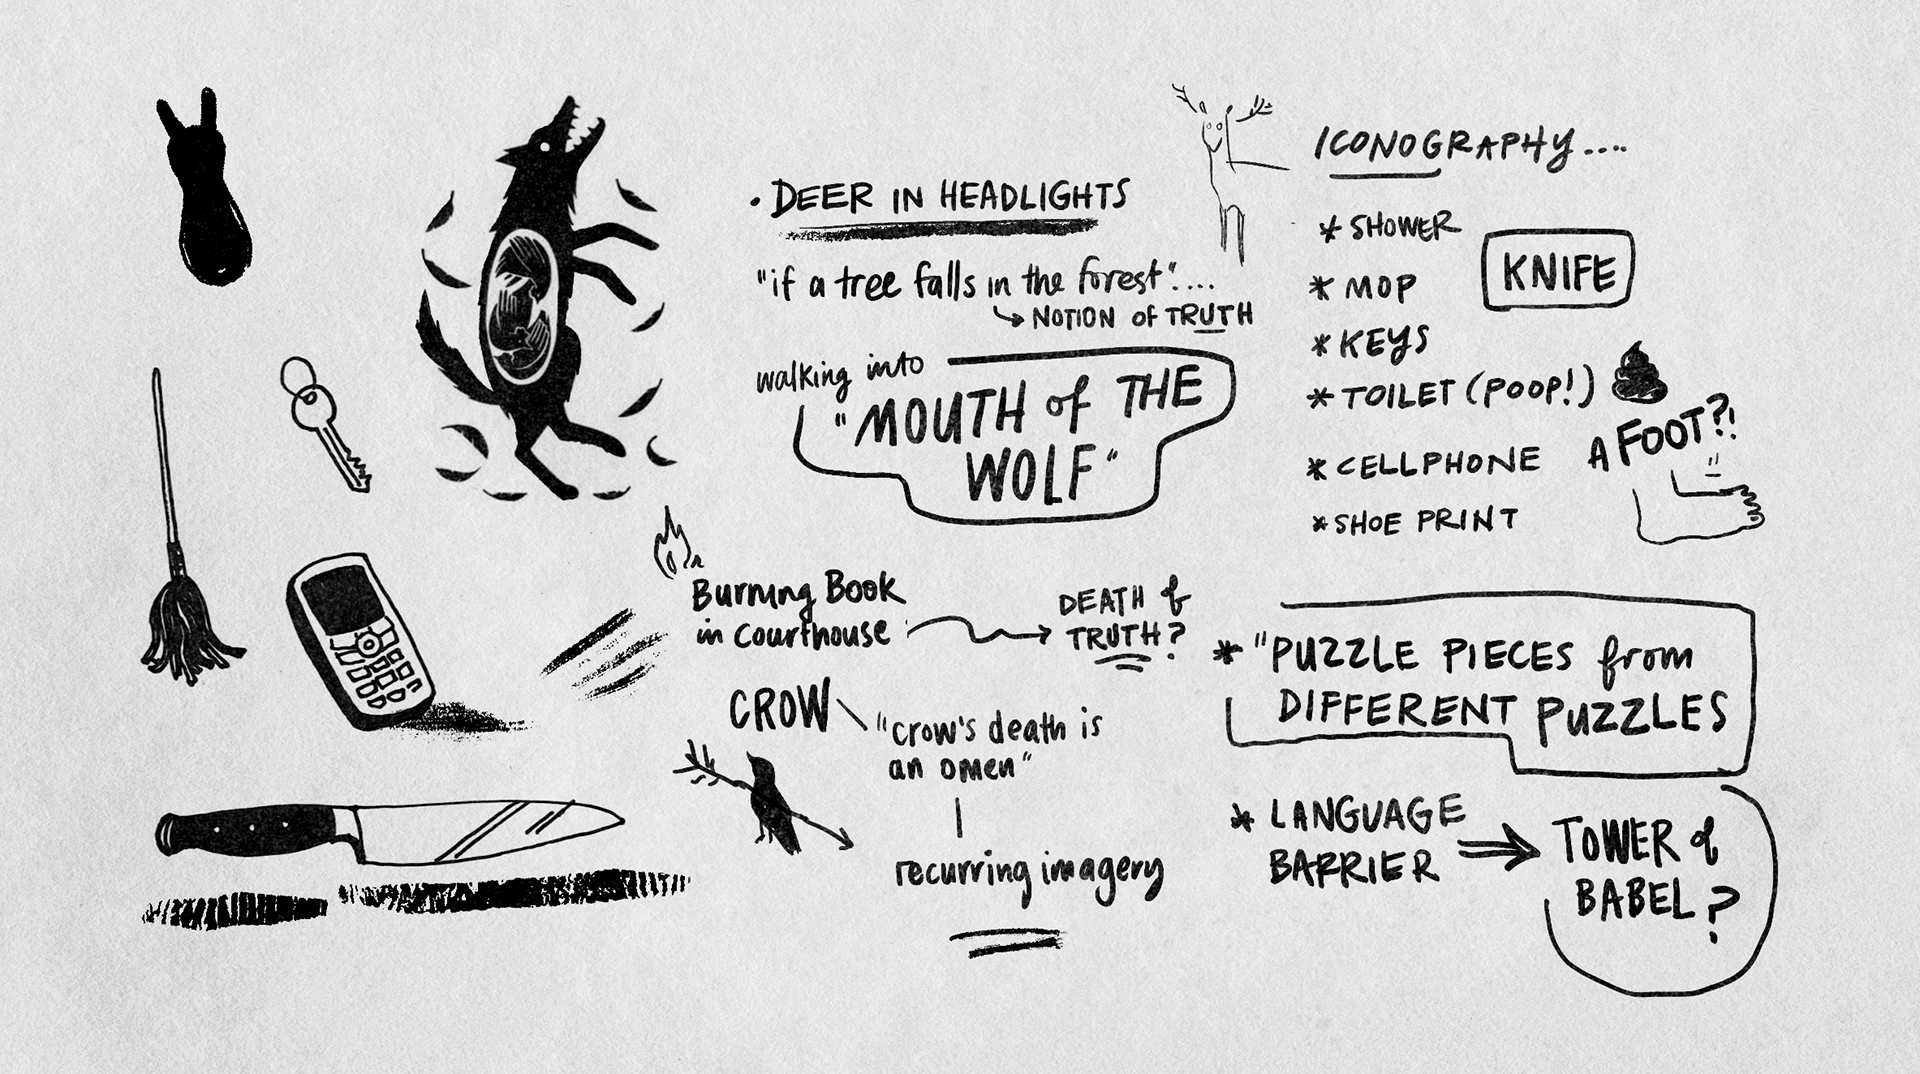 • DEER IN HEADLIGHTS
"if a tree falls in the forest"....
NOTION OF TRUTH
walking into
"MOUTH of THE
WOLF"
Burning Book
in Courthouse
DEATH of
TRUTH?
CROW
"crow's death is
an omen"
recurring imagery
ICONOGRAPHY....
* SHOWER
* MOP
* KEYS
* TOILET (POOP!)
* CELLPHONE
* SHOE PRINT
KNIFE
A FOOT?!
* "PUZZLE PIECES from
DIFFERENT PUZZLES
* LANGUAGE
BARRIER
TOWER of
BABEL?